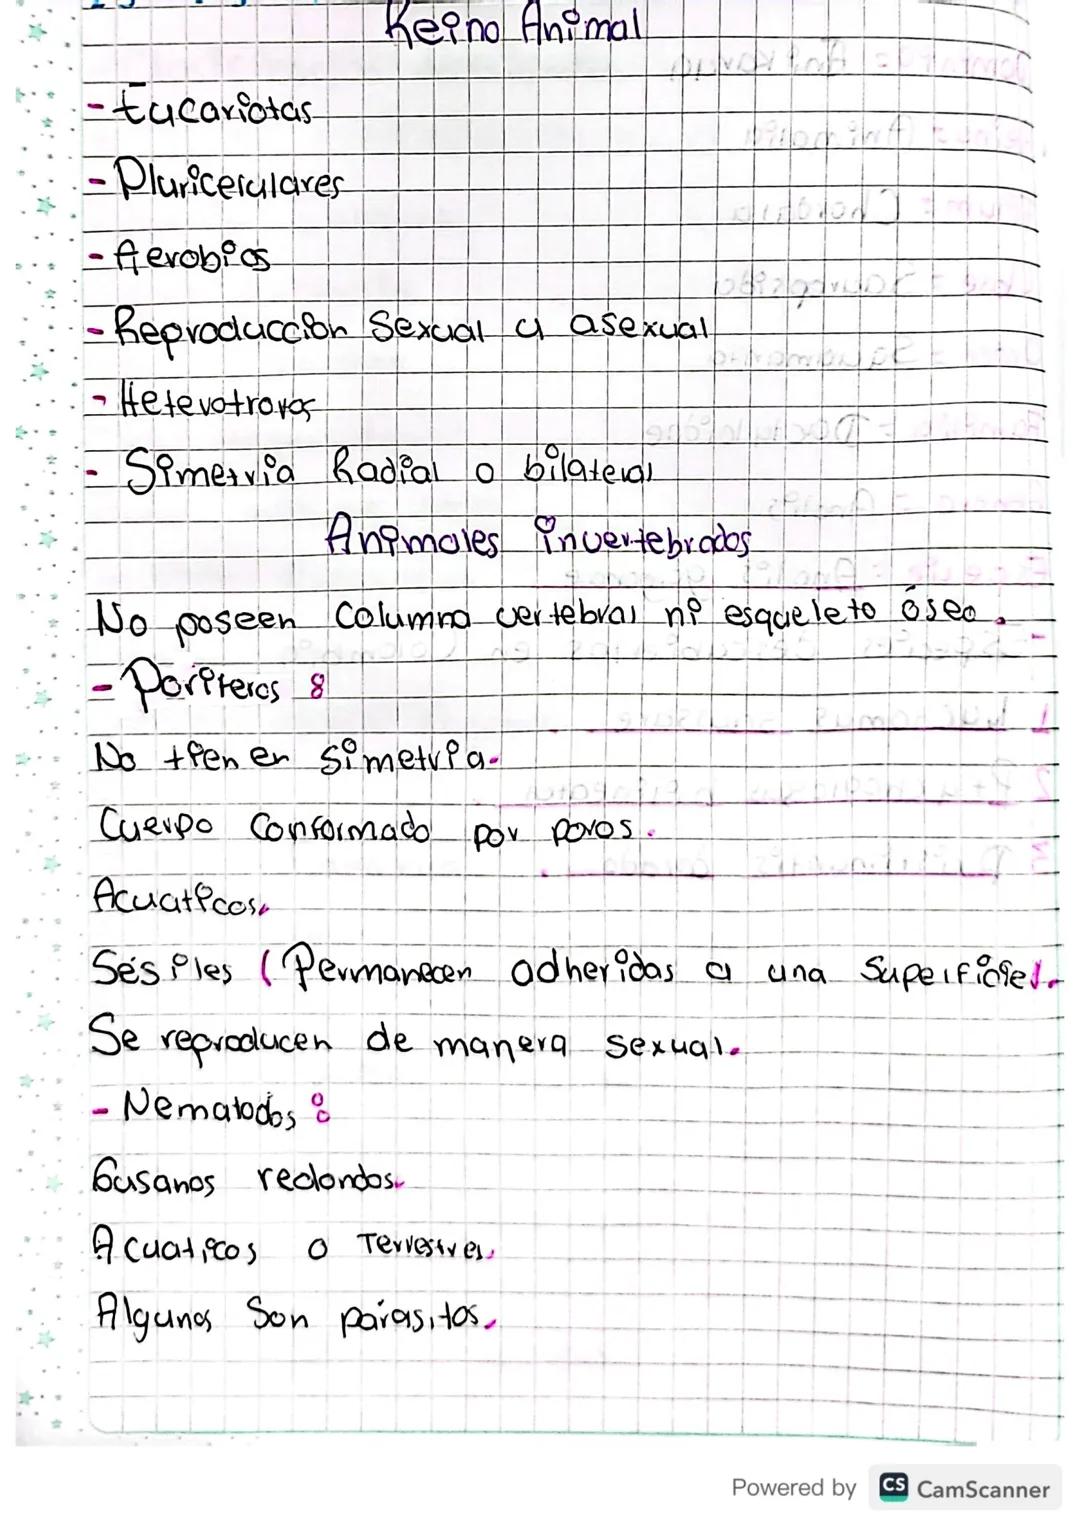 Reino Animal
- Eucariotas
- Pluricelulares
- Aerobios
- Reproduccion Sexual y asexual
- Heterotrovos
- Simetria Radial o bilateral
Animales invertebrados
No poseen Columna vertebral ni esqueleto óseo.
- Poriferos :
No tienen simetria.
Cuerpo Conformado por poros.
Acuaticos.
Sésiles (Permanecen adheridas a una Superficie).
Se reproducen de manera sexual.
- Nematodos :
Gusanos redondos.
Acuaticos o Terrestres.
Algunos Son parásitos.
Powered by CS CamScanner